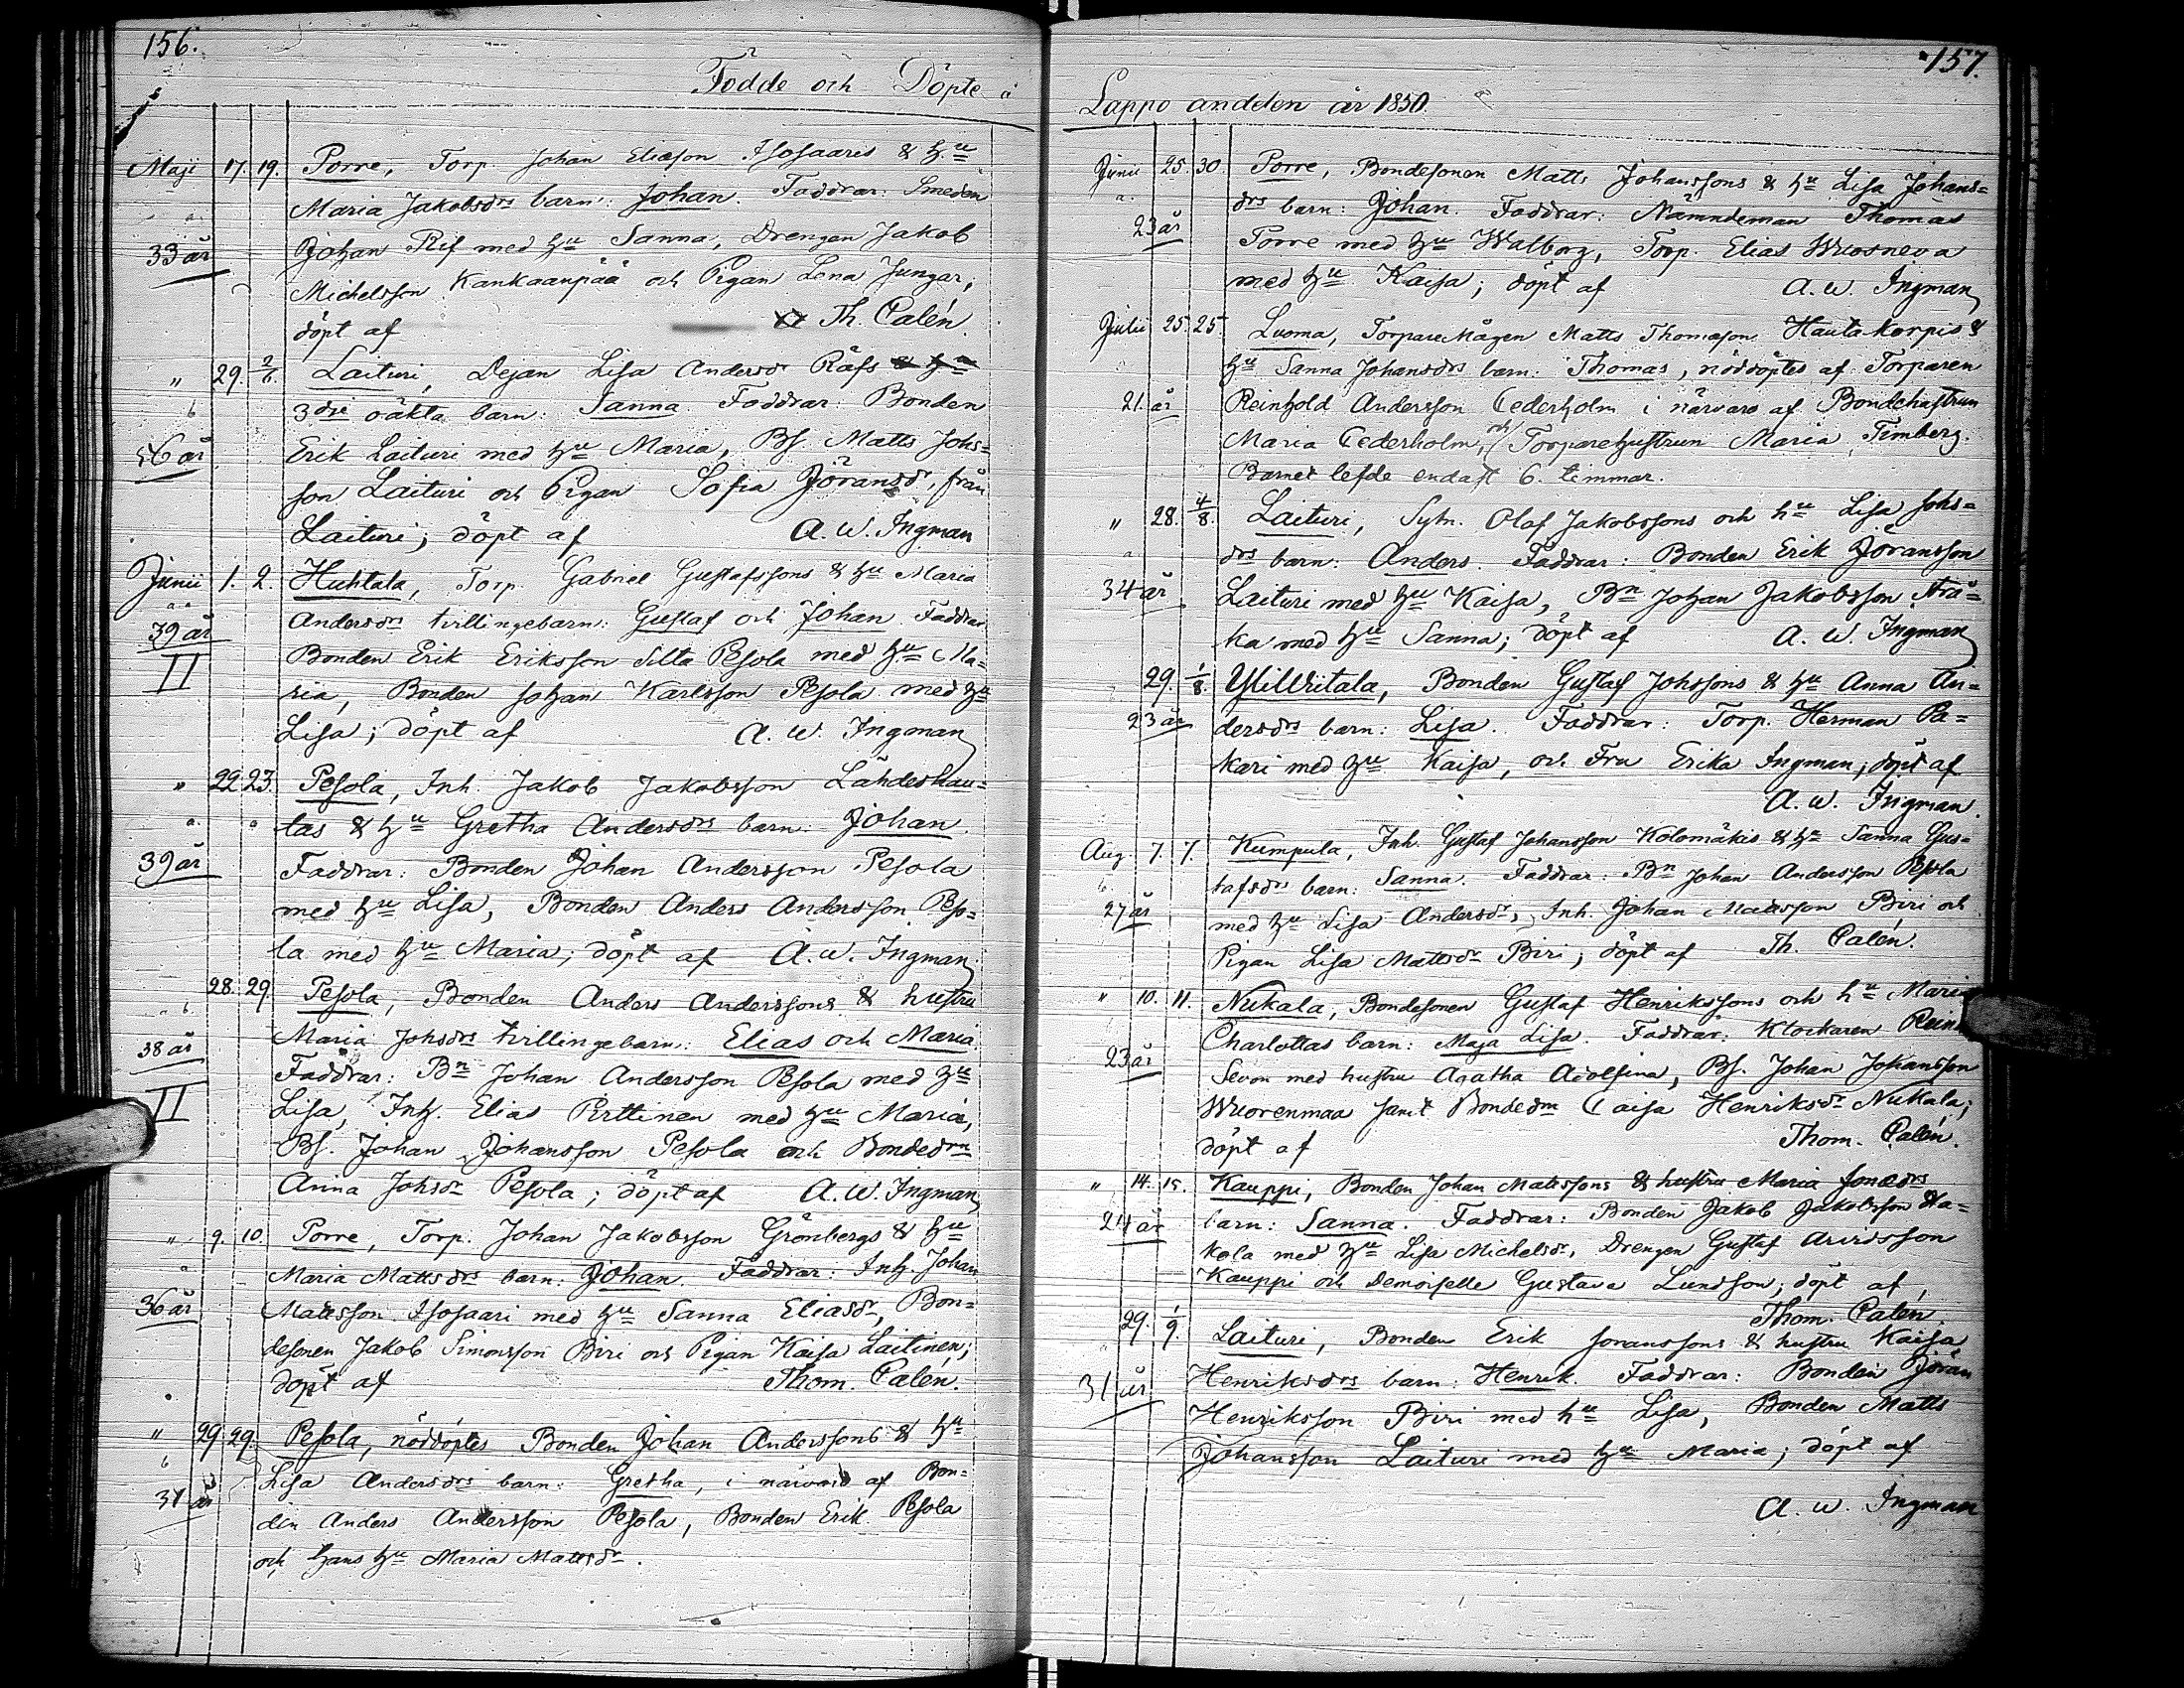 156.
Födde och Döpte å
Maji 17. 19. Porre, Torp. Johan Eliæson Isosaaris & h:u
Maria Jakobsdrs barn: Johan. Faddrar: Smeden
33 år Johan Rif med hu Sanna, Drengen Jakob
Michelsson Kankaanpää och Pigan Lena Jungar;
döpt af Th. Calén.
" 29. 2/6. Laituri, Dejan Lisa Andersdr Räfs
b 3die oäkta barn: Sanna. Faddrar: Bonden
36 år Erik Laituri med hu Maria, Bs. Matts Johs=
son Laituri och Pigan Sofia Jöransdr, från
Laituri; döpt af A. W. Ingman
Junii 1. 2. Huhtala, Torp. Gabriel Gustafssons & hu Maria
a a Andersdrs tvillingebarn: Gustaf och Johan. Faddrar
39 år Bonden Erik Eriksson Silta Pesola med hu Ma=
II ria, Bonden Johan Karlsson Pesola med hu
Lisa; döpt af A. W. Ingman
" 22. 23. Pesola, Inh. Jakob Jakobsson Lähdeshau=
a. tas & hu Gretha Andersdrs barn: Johan.
39 år Faddrar: Bonden Johan Andersson Pesola
med hu Lisa, Bonden Anders Andersson Peso=
la med hu Maria; döpt af A. W. Ingman
28. 29. Pesola, Bonden Anders Anderssons & hustru
a b Maria Johsdrs tvillingebarn: Elias och Maria.
38 år Faddrar: Bn Johan Andersson Pesola med hu
II Lisa, Inh. Elias Pirttinen med hu Maria,
Bs. Johan Johansson Pesola och Bondedrn
Anna Johsdr Pesola; döpt af A. W. Ingman
" 9. 10. Porre, Torp. Johan Jakobsson Grönbergs & hu
a Maria Mattsdrs barn: Johan. Faddrar: Inh. Johan
36 år Mattsson Isosaari med hu Sanna Eliasdr, Bon=
desonen Jakob Simonsson Biri och Pigan Kaisa Laitinen;
döpt af Thom. Calén.
" 29. 29. Pesola, nöddöptes Bonden Johan Anderssons & hu
b Lisa Andersdrs barn: Gretha, i närvaro af Bon=
31 år den Anders Andersson Pesola, Bonden Erik Pesola
och hans hu Maria Mattsdr.
157.
Lappo andelen år 1850.
Junii 25. 30. Porre, Bondesonen Matts Johanssons & hu Lisa Johans=
a. drs barn: Johan. Faddrar: Nämndeman Thomas
23 år Porre med hu Walborg, Torp. Elias Wuosneva
med hu Kaisa; döpt af A. W. Ingman
Julii 25. 25. Luoma, Torpare Mågen Matts Thomæson Hautakorpis &
hu Sanna Johansdrs barn: Thomas, nöddöptes af Torparen
21 år Reinhold Andersson Cederholm i närvaro af Bondehustrun
Maria Cederholm, och Torparehustrun Maria Timberg.
Barnet lefde endast 6. timmar.
" 28. 4/8. Laituri, Sytn. Olaf Jakobssons och hu Lisa Johs=
a drs barn: Anders. Faddrar: Bonden Erik Jöransson
34 år Laituri med hu Kaisa, Bn Johan Jakobsson Strå=
ka med hu Sanna; döpt af A. W. Ingman
29. 1/8. YliWiitala, Bonden Gustaf Johssons & hu Anna An=
23 år dersdrs barn: Lisa. Faddrar: Torp. Herman Pa=
kari med hu Kaisa, och Fru Erika Ingman; döpt af
A. W. Ingman.
Aug. 7. 7. Kumpula, Inh. Gustaf Johansson Kolomäkis & hu Sanna Gus=
b. tafsdrs barn: Sanna. Faddrar: Bn Johan Andersson Pesola
27 år med hu Lisa Andersdr, Inh. Johan Mattsson Biri och
Pigan Lisa Mattsdr Biri; döpt af Th. Calén.
" 10. 11. Nukala, Bondesonen Gustaf Henrikssons och hu Maria
Charlottas barn: Maja Lisa. Faddrar: Klockaren Rein
23 år Sevon med hustru Agatha Adolfina, Bs. Johan Johansson
Wuorenmaa samt Bondedrn Caisa Henriksdr Nukala;
döpt af Thom. Calén.
" 14. 15. Kauppi, Bonden Johan Mattssons & hustru Maria Jonædrs
24 år barn: Sanna. Faddrar: Bonden Jakob Jakobsson Ha=
kola med hu Lisa Michelsdr, Drengen Gustaf Arvidsson
Kauppi och Demoiselle Gustava Lundson; döpt af
Thom. Calén.
29. 1/9. Laituri, Bonden Erik Joranssons & hustru Kaisa
31 år Henriksdrs barn: Henrik. Faddrar: Bonden Jöran
Henriksson Biri med hu Lisa, Bonden Matts
Johansson Laituri med hu Maria; döpt af
A. W. Ingman